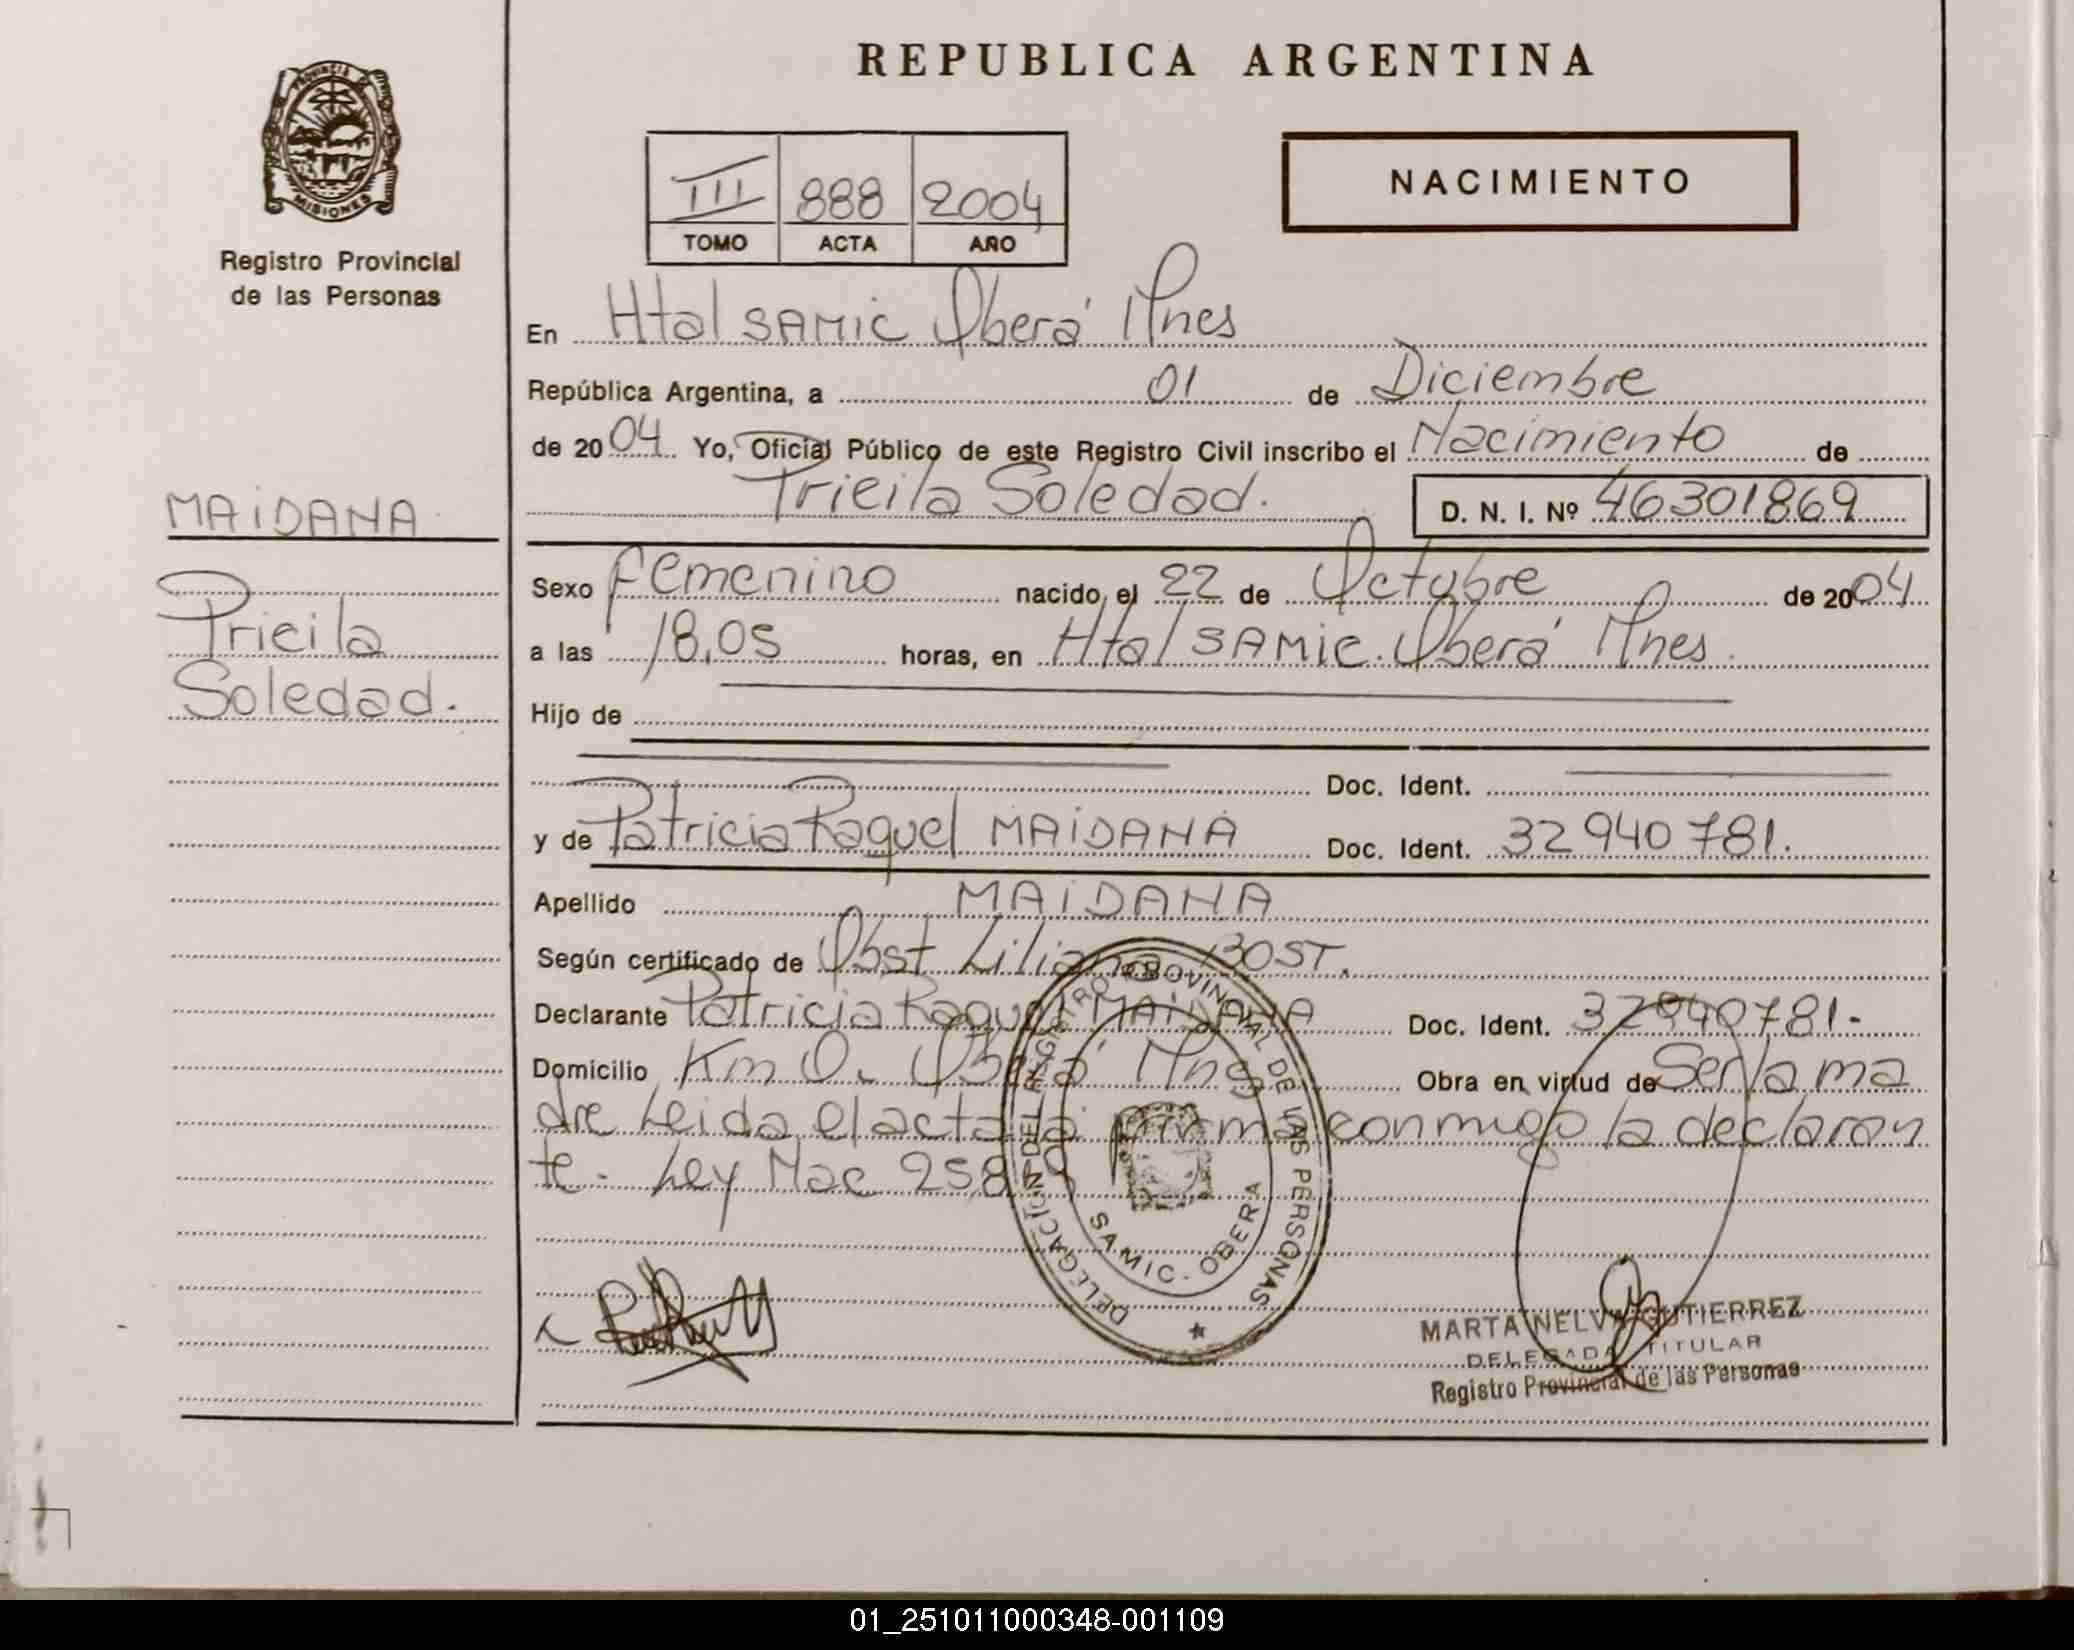 REPUBLICA ARGENTINA
PROVINCIA DE
MISIONES
Registro Provincial
de las Personas
III 888 2004
TOMO ACTA AÑO
NACIMIENTO
En Htal SAMIC Oberá Mnes
República Argentina, a 01 de Diciembre
de 2004 Yo, Oficial Público de este Registro Civil inscribo el Nacimiento de
Pricila Soledad. D. N. I. Nº 46301869
MAIDANA
Pricila
Soledad.
Sexo Femenino nacido el 22 de Octubre de 2004
a las 18,05 horas, en Htal SAMIC. Oberá Mnes.
Hijo de
Doc. Ident.
y de Patricia Raquel MAIDANA Doc. Ident. 32940781.
Apellido MAIDANA
Según certificado de Obst Liliana BOST.
Declarante Patricia Raquel MAIDANA Doc. Ident. 32940781-
Domicilio Km 0. Oberá Mnes Obra en virtud de Ser la ma
dre Leida el acta la firma conmigo la declaran
te. Ley Nac
DELEGACION DEL REGISTRO PROVINCIAL DE LAS PERSONAS
SAMIC - OBERA
MARTA NELVA GUTIERREZ
DELEGADA TITULAR
Registro Provincial de las Personas
01_251011000348-001109